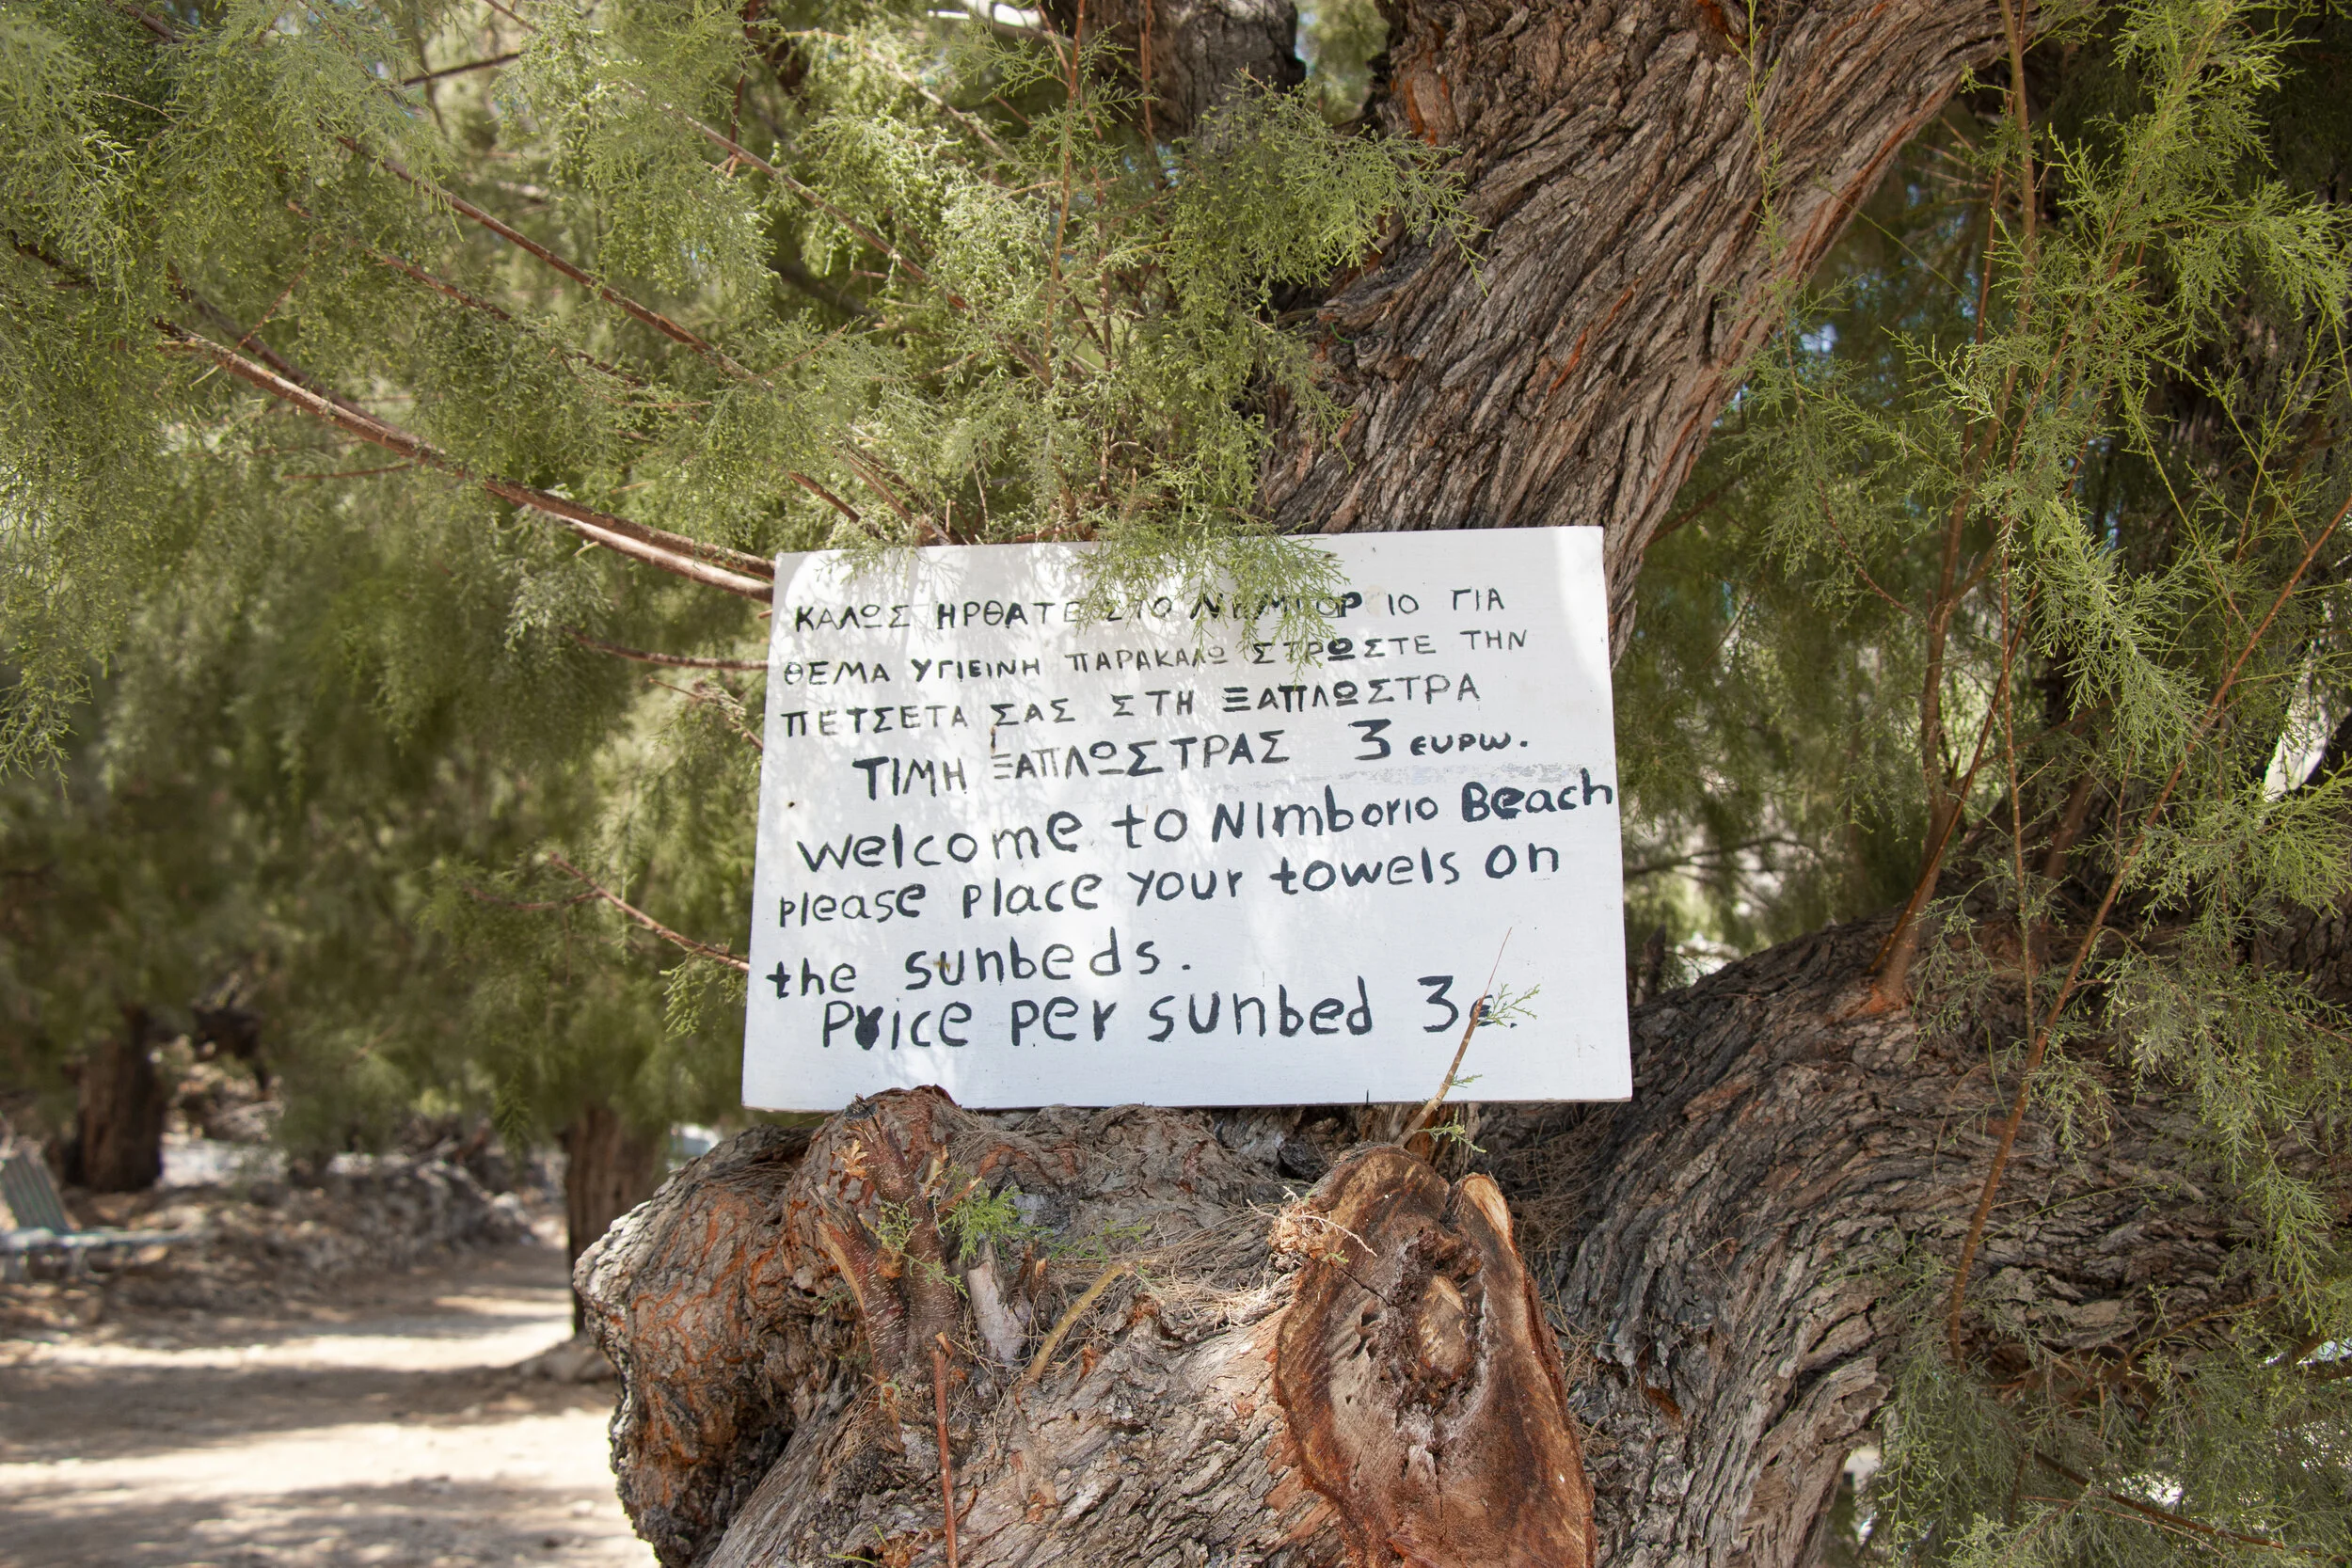 ΚΑΛΩΣ ΗΡΘΑΤΕ ΣΤΟ ΝΗΜΠΟΡ ΙΟ ΓΙΑ
ΘΕΜΑ ΥΓΙΕΙΝΗ ΠΑΡΑΚΑΛΩ ΣΤΡΩΣΤΕ ΤΗΝ
ΠΕΤΣΕΤΑ ΣΑΣ ΣΤΗ ΞΑΠΛΩΣΤΡΑ
ΤΙΜΗ ΞΑΠΛΩΣΤΡΑΣ 3 ευρω.
Welcome to Nimborio Beach
please place your towels on
the sunbeds.
Price per sunbed 3€.